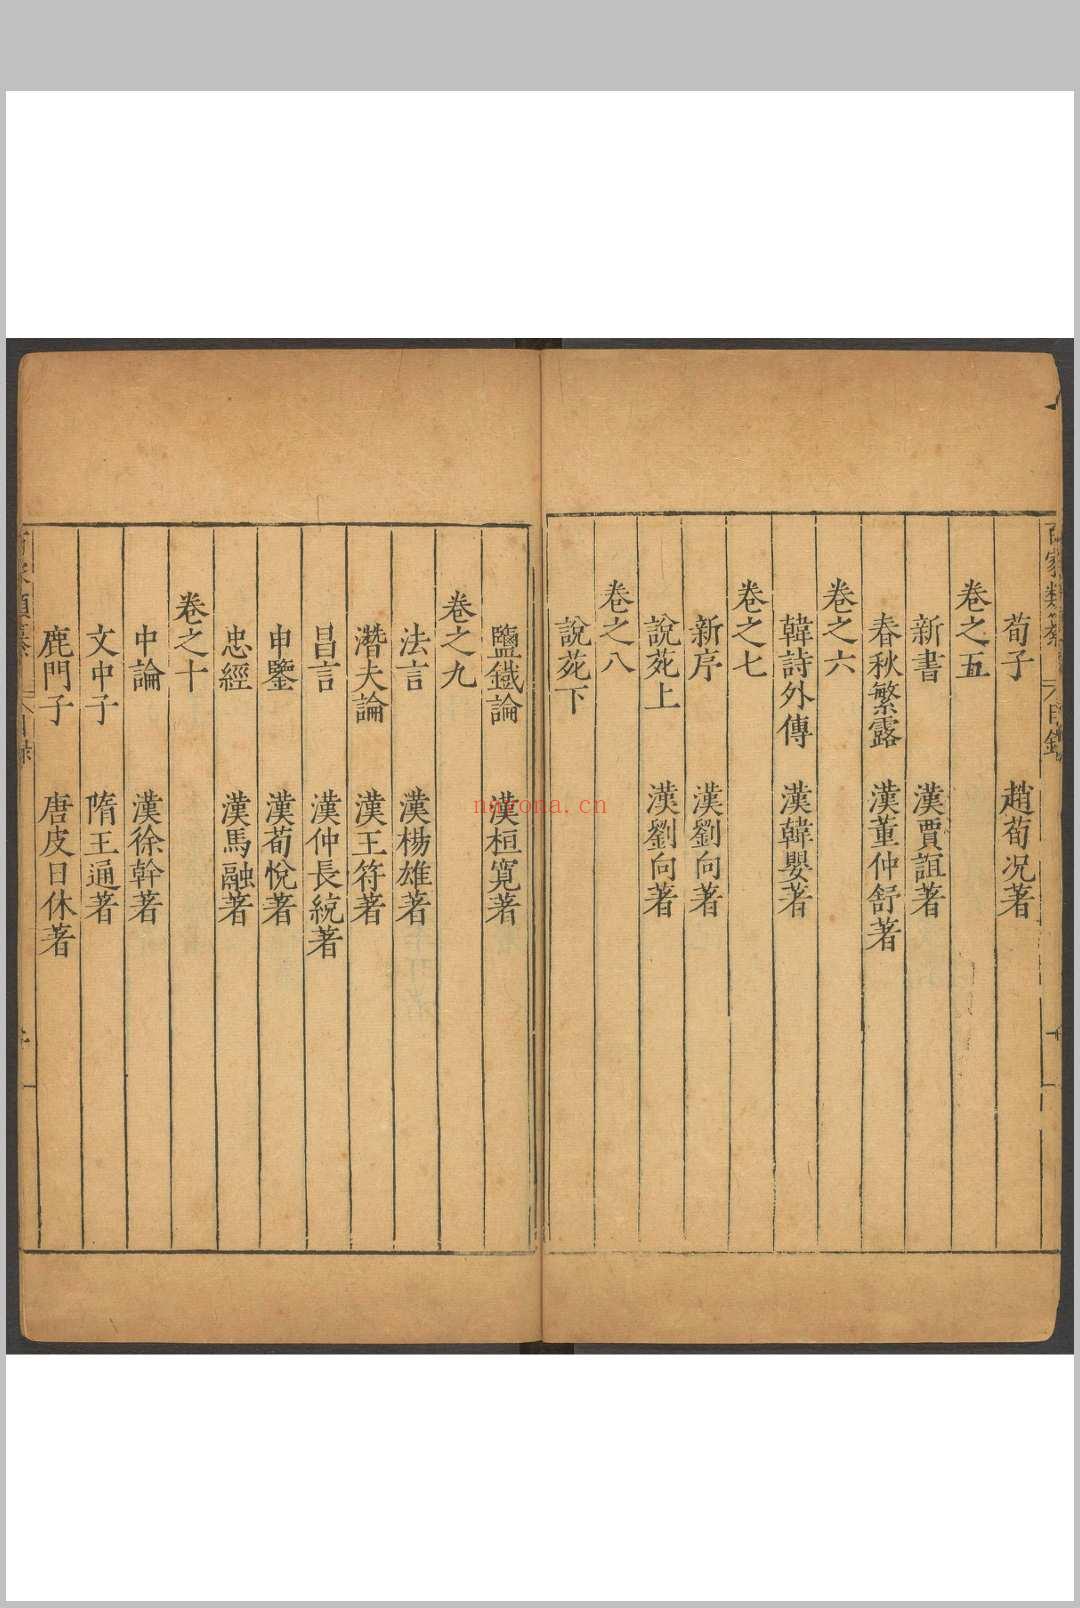 百家類纂 目錄
荀子 趙荀况著
卷之五
新書 漢賈誼著
春秋繁露 漢董仲舒著
卷之六
韓詩外傳 漢韓嬰著
卷之七
新序 漢劉向著
說苑上 漢劉向著
卷之八
說苑下
鹽鐵論 漢桓寬著
卷之九
法言 漢楊雄著
潛夫論 漢王符著
昌言 漢仲長統著
申鑒 漢荀悅著
忠經 漢馬融著
卷之十
中論 漢徐幹著
文中子 隋王通著
鹿門子 唐皮日休著
nayona.cn